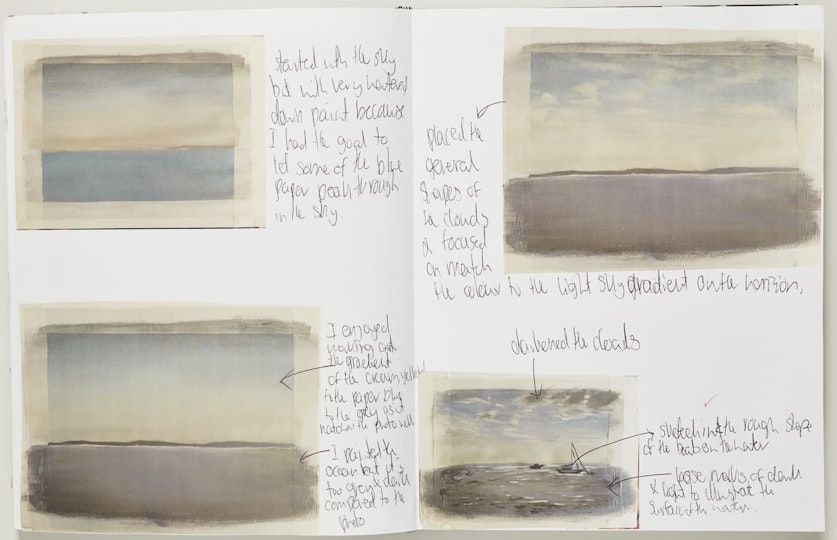 started with the sky
but with very watered
down paint because
I had the goal to
let some of the blue
paper peak through
in the sky.
I enjoyed
making and
the gradient
of the cream yellow
to the paper blue
to the grey as it
matches the photo well
I painted the
ocean but it is
too grey & dark
compared to the
photo
placed the
general
shapes of
the clouds
& focused
on match
the colour to the light sky gradient on the horizon,
darkened the clouds
sketch in the rough shape
of the boat on the water
loose marks of dark
& light to illustrate the
surface of the water.